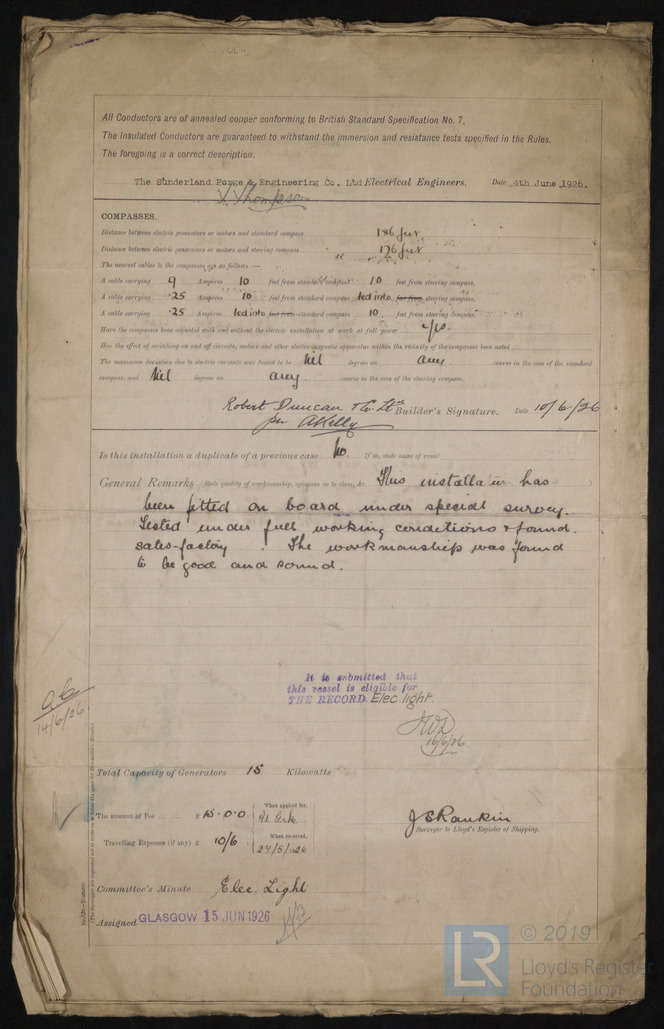 All Conductors are of annealed copper conforming to British Standard Specification No. 7.
The Insulated Conductors are guaranteed to withstand the immersion and resistance tests specified in the Rules.
The foregoing is a correct description.
The Sunderland Forge & Engineering Co. Ltd Electrical Engineers. Date 4th June 1926.
J. Thompson
COMPASSES.
Distance between electric generators or motors and standard compass 186 feet
Distance between electric generators or motors and steering compass 176 feet
The nearest cables to the compasses are as follows:—
A cable carrying 9 Amperes 10 feet from standard compass 10 feet from steering compass.
A cable carrying .25 Amperes 10 feet from standard compass led into feet from steering compass.
A cable carrying .25 Amperes led into feet from standard compass 10 feet from steering compass.
Have the compasses been adjusted with and without the electric installation at work at full power yes.
Has the effect of switching on and off circuits, motors and other electro-magnetic apparatus within the vicinity of the compasses been noted
The maximum deviation due to electric currents was found to be Nil degrees on any course in the case of the standard
compass, and Nil degrees on any course in the case of the steering compass.
Robert Duncan & Co. Ltd Builder's Signature. Date 10/6/26
per A Kelly
Is this installation a duplicate of a previous case No. If so, state name of vessel
General Remarks (State quality of workmanship, opinions as to class, &c. This installation has
been fitted on board under special survey.
Tested under full working conditions & found
satisfactory. The workmanship was found
to be good and sound.
It is submitted that
this vessel is eligible for
THE RECORD. Elec light.
16/6/26
14/6/26
Total Capacity of Generators 15 Kilowatts
The amount of Fee £ 15.0.0 When applied for,
Travelling Expenses (if any) £ 10/6 When received,
27/5/1926
J S Rankin
Surveyor to Lloyd's Register of Shipping.
Committee's Minute Elec. Light
Assigned GLASGOW 15 JUN 1926
LR © 2019
Lloyd's Register
Foundation